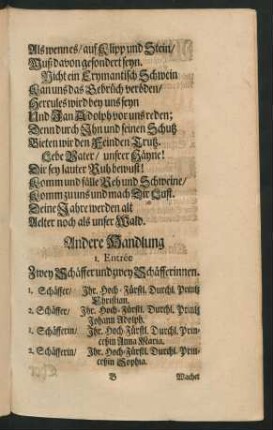 Als wennes/ auf Klipp und Stein/
Muß davon gesondert seyn.
Nicht ein Erymantisch Schwein
Kan uns das Gebrüch veröden/
Herrules wird bey uns seyn
Und Jan Adolph vor uns reden;
Denn durch Ihn und seinen Schutz
Bieten wir den Feinden Trutz.
Lebe Vater/ unser Häyne!
Dir sey lauter Ruh bewust!
Komm und fälle Reh und Schweine/
Komm zu uns und mach Dir Lust.
Deine Jahre werden alt
Aelter noch als unser Wald.
Andere Handlung
1. Entrée
Zwey Schäffer und zwey Schäfferinnen.
1. Schäffer/ Ihr. Hoch-Fürstl. Durchl. Printz
Christian.
2. Schäffer/ Ihr. Hoch-Fürstl. Durchl. Printz
Johann Adolph.
1. Schäfferin/ Ihr. Hoch Fürstl. Durchl. Prin-
ceßin Anna Maria.
2. Schäfferin/ Ihr. Hoch-Fürstl. Durchl. Prin-
ceßin Sophia.
B Wachet